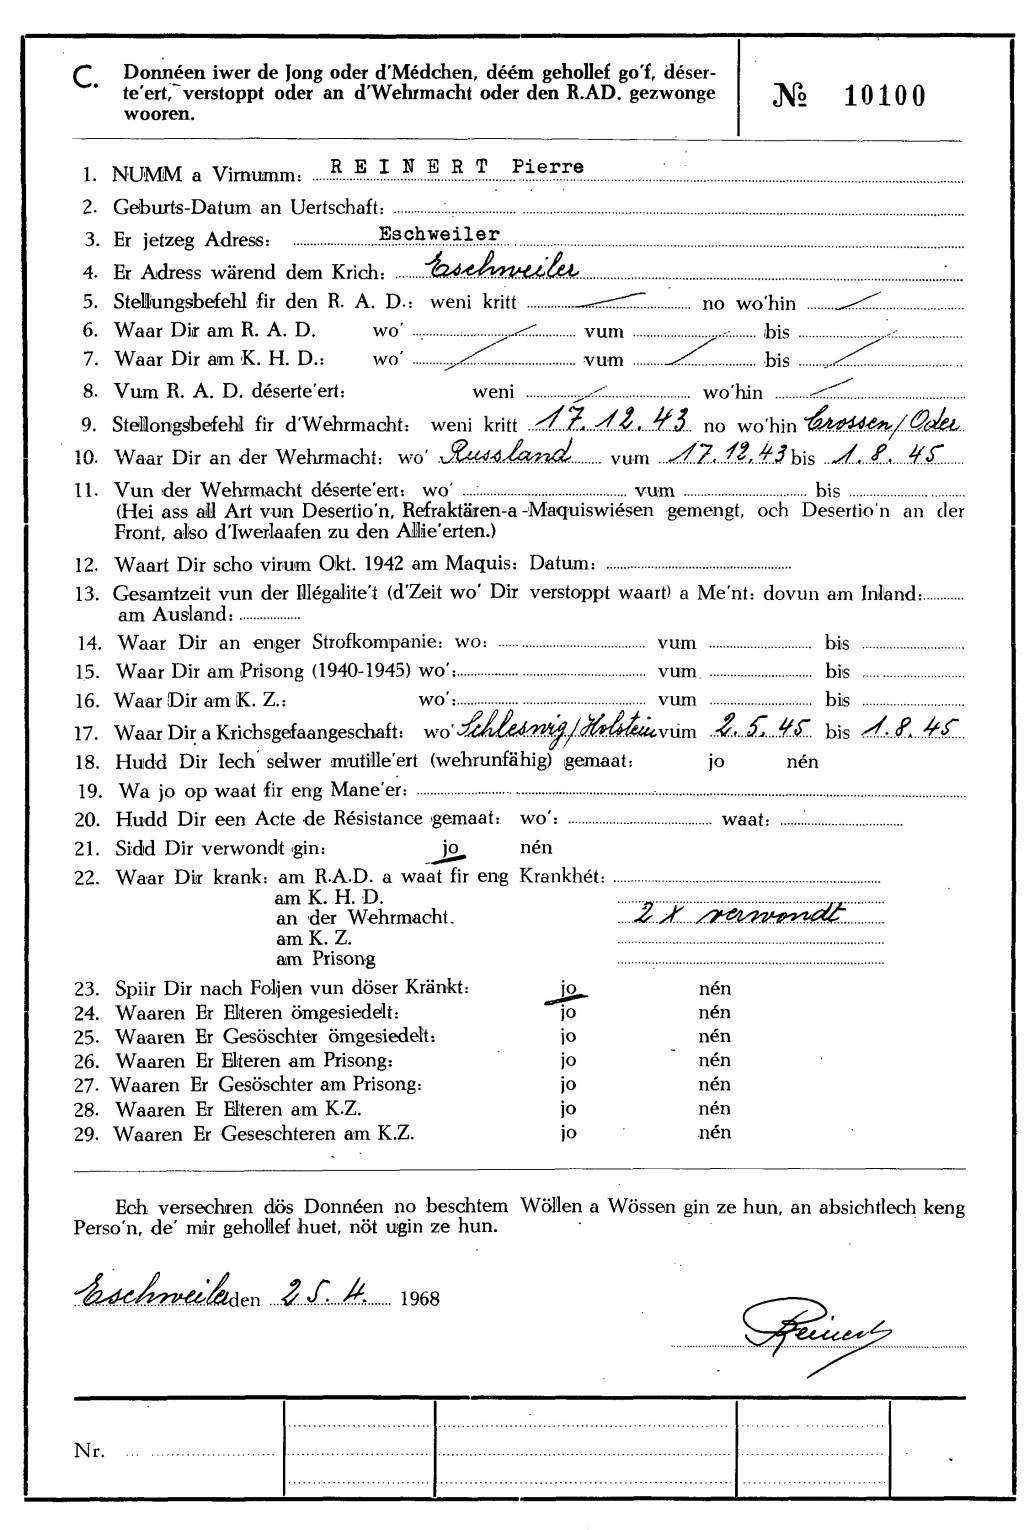 C. Donnéen iwer de Jong oder d'Médchen, déém gehollef go'f, déser-
te'ert, verstoppt oder an d'Wehrmacht oder den R.AD. gezwonge
wooren.
№ 10100
1. NUMM a Virnumm: REINERT Pierre
2. Geburts-Datum an Uertschaft:
3. Er jetzeg Adress: Eschweiler
4. Er Adress wärend dem Krich: Eschweiler
5. Stellungsbefehl fir den R. A. D.: weni kritt no wo'hin
6. Waar Dir am R. A. D. wo' vum bis
7. Waar Dir am K. H. D.: wo' vum bis
8. Vum R. A. D. déserte'ert: weni wo'hin
9. Stellongsbefehl fir d'Wehrmacht: weni kritt 17.12.43 no wo'hin Crossen/Oder
10. Waar Dir an der Wehrmacht: wo' Russland vum 17.12.43 bis 1.8.45
11. Vun der Wehrmacht déserte'ert: wo' vum bis
(Hei ass all Art vun Desertio'n, Refraktären-a-Maquiswiésen gemengt, och Desertio'n an der
Front, also d'Iwerlaafen zu den Allie'erten.)
12. Waart Dir scho virum Okt. 1942 am Maquis: Datum:
13. Gesamtzeit vun der Illégalite't (d'Zeit wo' Dir verstoppt waart) a Me'nt: dovun am Inland:
am Ausland:
14. Waar Dir an enger Strofkompanie: wo: vum bis
15. Waar Dir am Prisong (1940-1945) wo': vum bis
16. Waar Dir am K. Z.: wo': vum bis
17. Waar Dir a Krichsgefaangeschaft: wo' Schleswig/Holstein vum 2.5.45 bis 1.8.45
18. Hudd Dir Iech selwer mutille'ert (wehrunfähig) gemaat: jo nén
19. Wa jo op waat fir eng Mane'er:
20. Hudd Dir een Acte de Résistance gemaat: wo': waat:
21. Sidd Dir verwondt gin: jo nén
22. Waar Dir krank: am R.A.D. a waat fir eng Krankhét:
am K. H. D.
an der Wehrmacht. 2 x verwondt
am K. Z.
am Prisong
23. Spiir Dir nach Foljen vun döser Kränkt: jo nén
24. Waaren Er Elteren ömgesiedelt: jo nén
25. Waaren Er Gesöschter ömgesiedelt: jo nén
26. Waaren Er Elteren am Prisong: jo nén
27. Waaren Er Gesöschter am Prisong: jo nén
28. Waaren Er Elteren am K.Z. jo nén
29. Waaren Er Geseschteren am K.Z. jo nén
Ech versechren dös Donnéen no beschtem Wöllen a Wössen gin ze hun, an absichtlech keng
Perso'n, de' mir gehollef huet, nöt ugin ze hun.
Eschweiler den 25.4. 1968
Reinert
Nr.